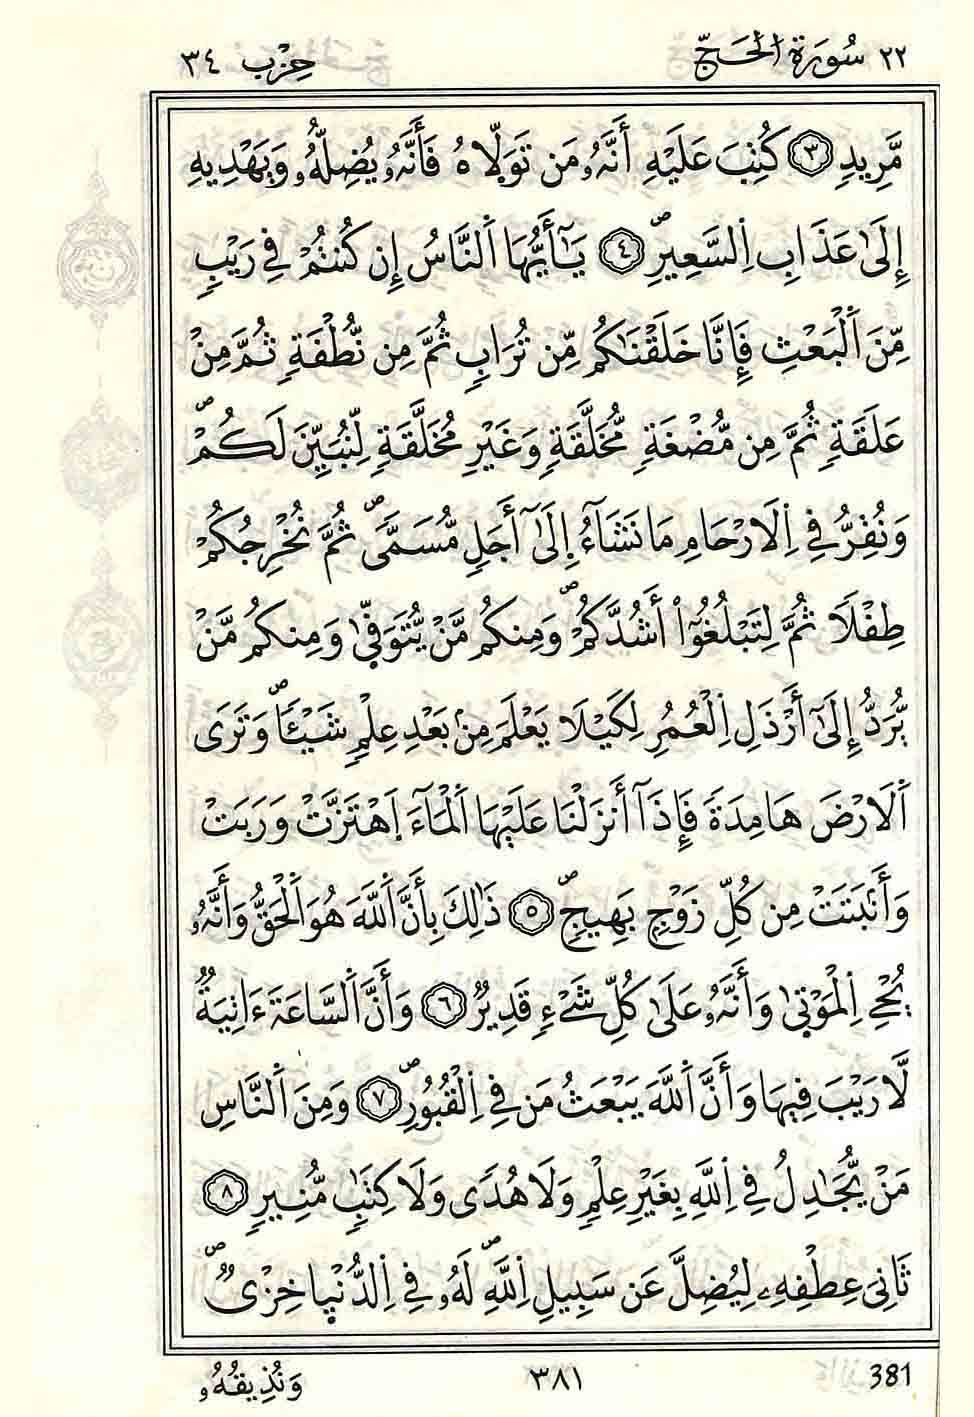 ٢٢ سُورَةُ الْحَجّ حِزْب ٣٤
مَّرِيدٍ ٣ كُتِبَ عَلَيْهِ أَنَّهُۥ مَن تَوَلّ۪اهُ فَأَنَّهُۥ يُضِلُّهُۥ وَيَهْدِيهِ
إِلَىٰ عَذَابِ اِ۬لسَّعِيرِۖ ٤ يَٰٓأَيُّهَا اَ۬لنَّاسُ إِن كُنتُمْ فِي رَيْبٍ
مِّنَ اَ۬لْبَعْثِ فَإِنَّا خَلَقْنَٰكُم مِّن تُرَابٍ ثُمَّ مِن نُّطْفَةٍ ثُمَّ مِنْ
عَلَقَةٍ ثُمَّ مِن مُّضْغَةٍ مُّخَلَّقَةٍ وَغَيْرِ مُخَلَّقَةٍ لِّنُبَيِّنَ لَكُمْۖ
وَنُقِرُّ فِي اِ۬لَارْحَامِ مَا نَشَآءُ إِلَىٰٓ أَجَلٍ مُّسَمّىۖ ثُمَّ نُخْرِجُكُمْ
طِفْلًا ثُمَّ لِتَبْلُغُوٓاْ أَشُدَّكُمْۖ وَمِنكُم مَّنْ يُّتَوَفّ۪يٰ وَمِنكُم مَّنْ
يُّرَدُّ إِلَىٰٓ أَرْذَلِ اِ۬لْعُمُرِ لِكَيْلَا يَعْلَمَ مِنۢ بَعْدِ عِلْمٍ شَيْـٔاًۖ وَتَرَى
اَ۬لَارْضَ هَامِدَةً فَإِذَآ أَنزَلْنَا عَلَيْهَا اَ۬لْمَآءَ اَ۪هْتَزَّتْ وَرَبَتْ
وَأَنۢبَتَتْ مِن كُلِّ زَوْجٍ بَهِيجٍۖ ٥ ذَٰلِكَ بِأَنَّ اَ۬للَّهَ هُوَ اَ۬لْحَقُّ وَأَنَّهُۥ
يُحْيِ اِ۬لْمَوْت۪يٰ وَأَنَّهُۥ عَلَىٰ كُلِّ شَےْءٍ قَدِيرٌ ٦ وَأَنَّ اَ۬لسَّاعَةَ ءَاتِيَةٌ
لَّا رَيْبَ فِيهَا وَأَنَّ اَ۬للَّهَ يَبْعَثُ مَن فِي اِ۬لْقُبُورِۖ ٧ وَمِنَ اَ۬لنَّاسِ
مَنْ يُّجَٰدِلُ فِي اِ۬للَّهِ بِغَيْرِ عِلْمٍ وَلَا هُدىً وَلَا كِتَٰبٍ مُّنِيرٍ ٨
ثَانِيَ عِطْفِهِۦ لِيُضِلَّ عَن سَبِيلِ اِ۬للَّهِۖ لَهُۥ فِي اِ۬لدُّنْي۪ا خِزْيٌۖ
وَنُذِيقُهُۥ ٣٨١ 381